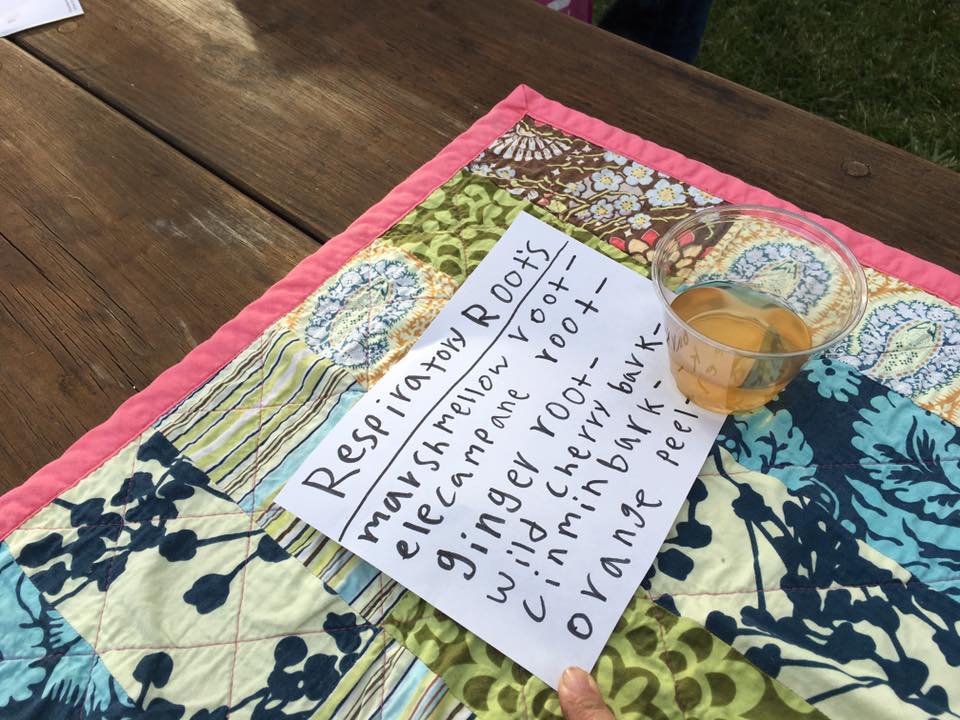 Respiratory Root's
marshmellow root-
elecampane root-
ginger root-
wild cherry bark-
cinmin bark-
orange peel